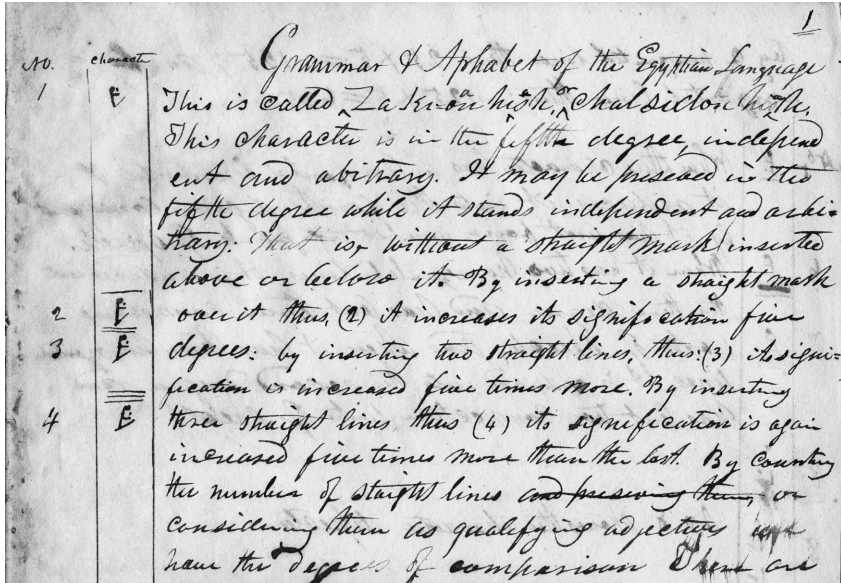 1
Grammar & Alphabet of the Egyptian Language
No. character
1 This is called Za Ki-oan hish, or chalsidon hish.
This character is in the fifth degree, independ
ent and abitrary. It may be preseved in the
fifth degree while it stands independent and arbi=
trary: That is, without a straight mark inserted
above or below it. By inserting a straight mark
2 over it thus, (2) it increases its signification five
3 degrees: by inserting two straight lines, thus: (3) its signi=
fication is increased five times more. By inserting
4 three straight lines thus (4) its signification is again
increased five times more than the last. By counting
the number of staight lines and preseving them, or
considering them as qualifying adjectives
have the degrees of comparison There are